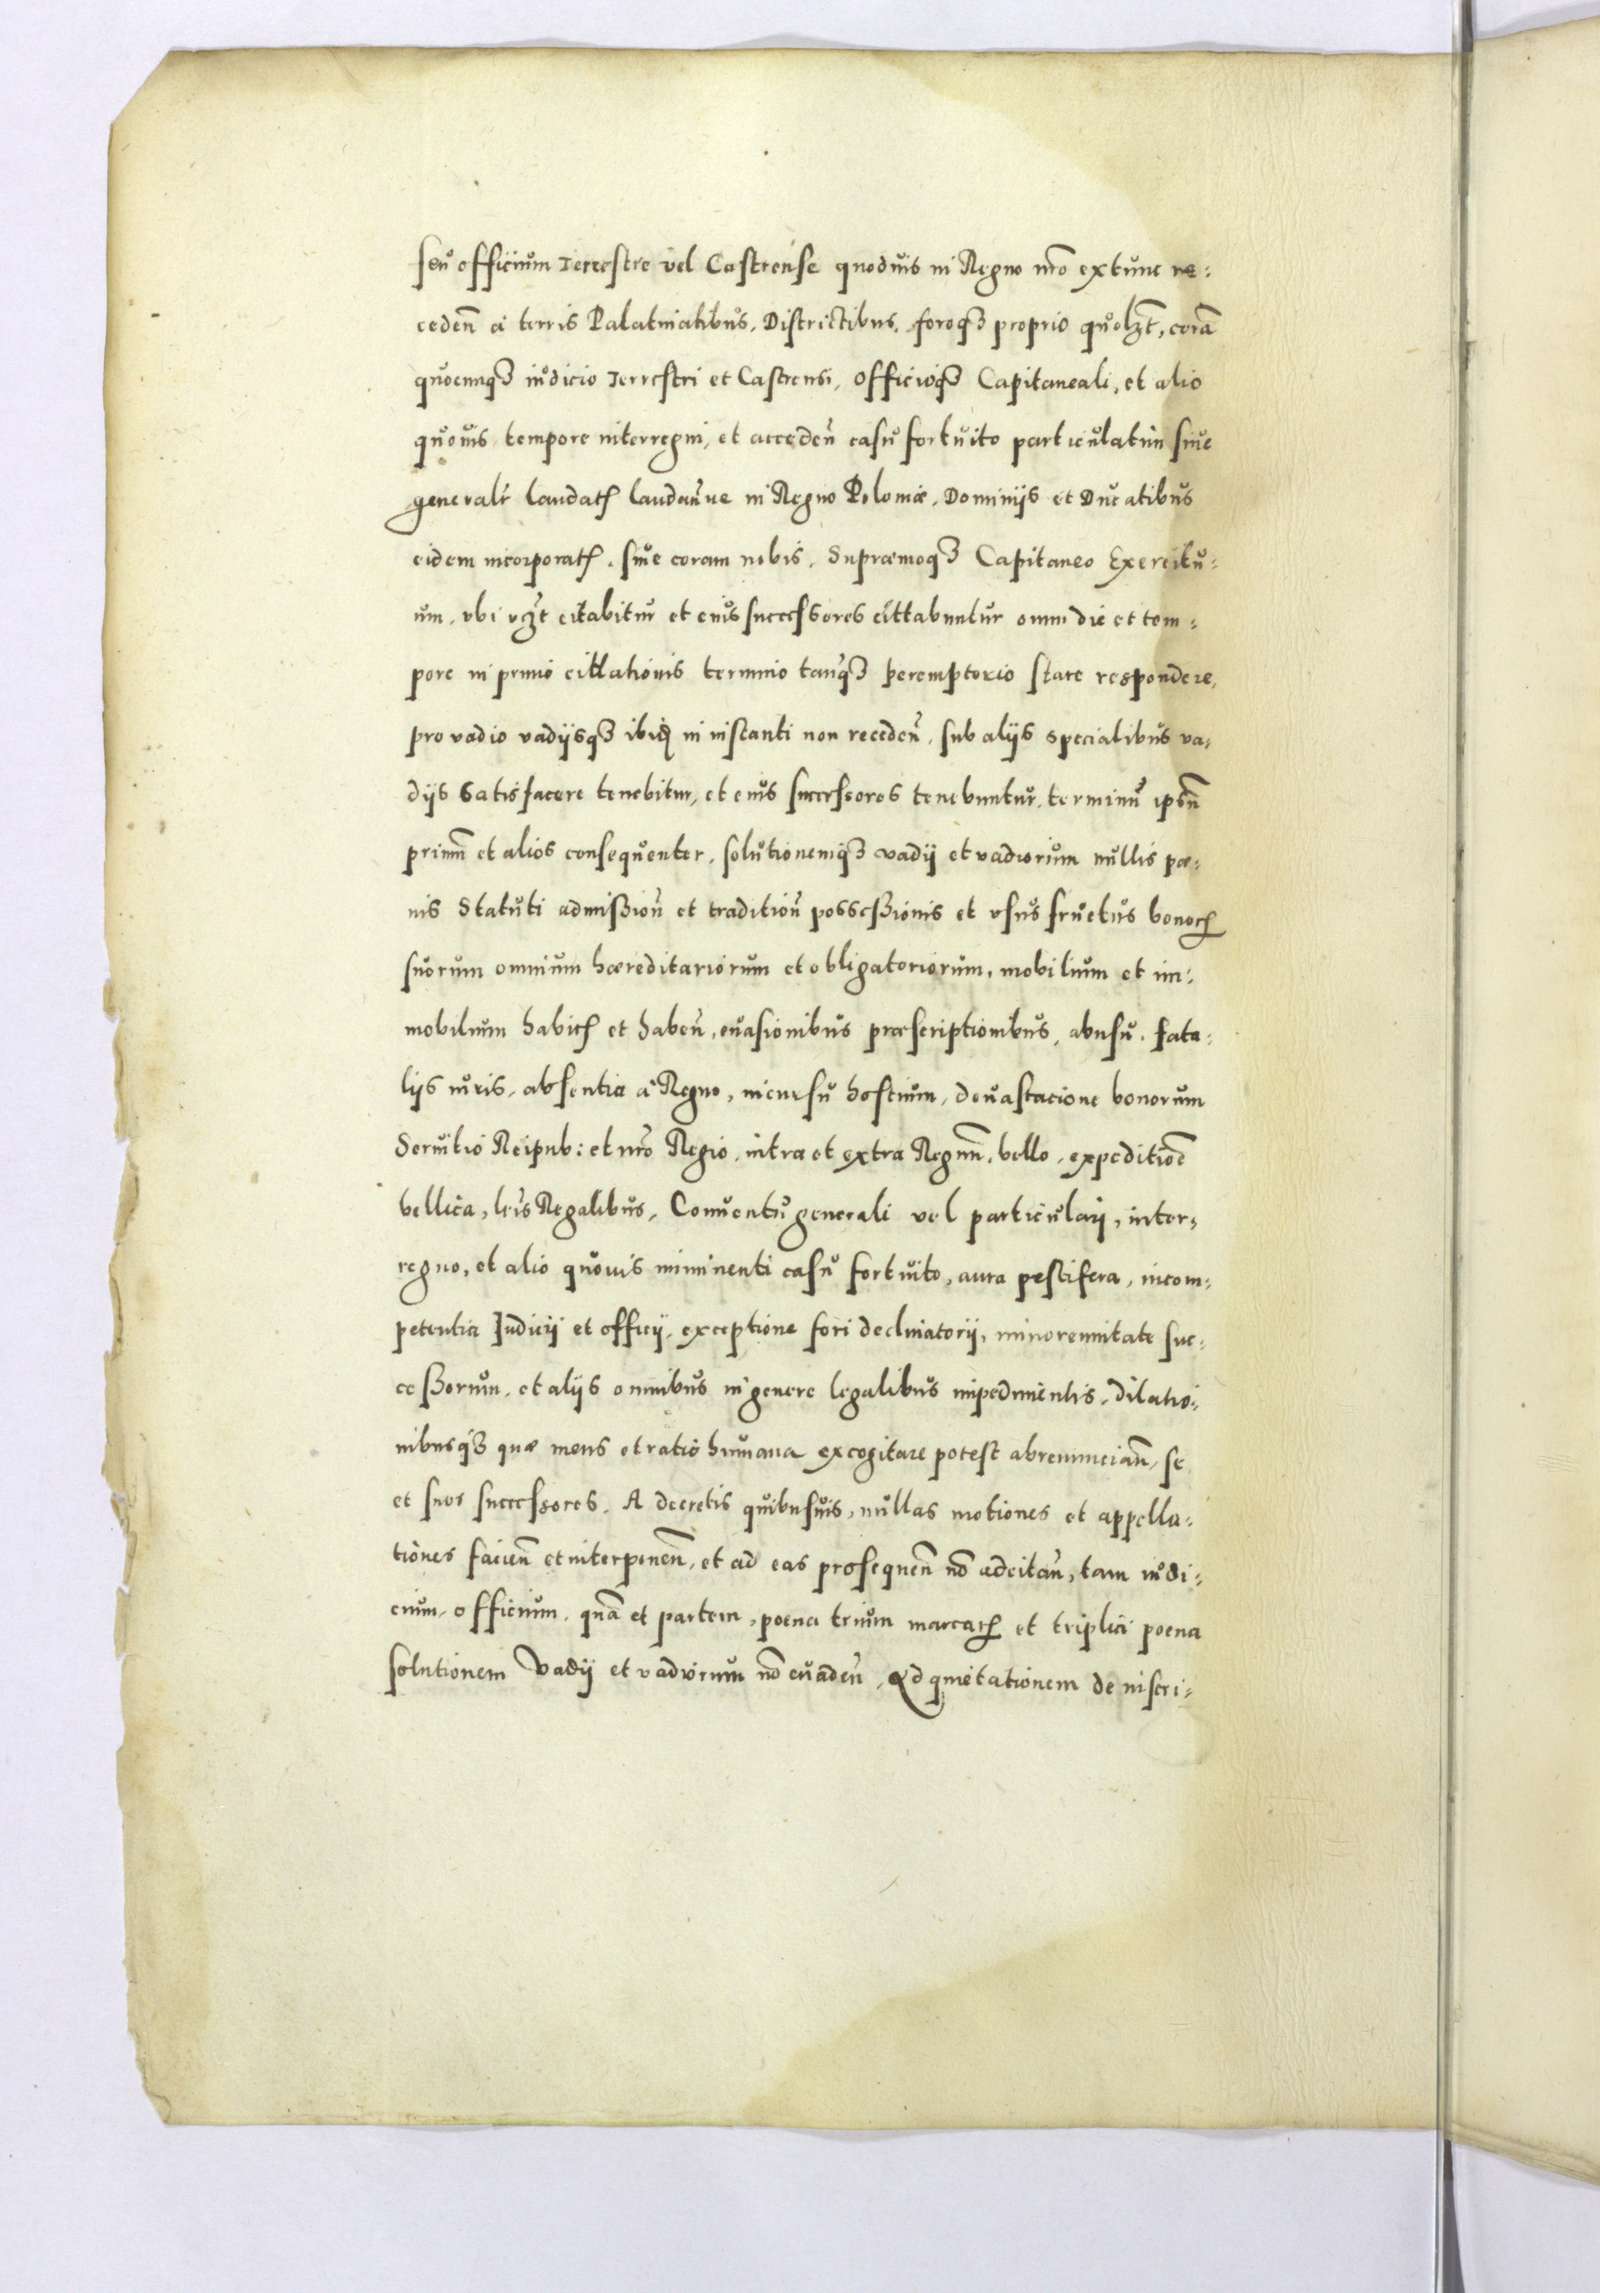 seu officium Terrestre vel Castrense quoduis in Regno nrõ extunc re:
cedeñ à terris Palatinatibus, Districtibus, foroq3 proprio quolzt, corã
quocunq3 iudicio Terrestri et Castrensi, officioq3 Capitaneali, et alio
quouis tempore interregni, et acceden̄ casu fortuito particulatim siue
generalr̄ laudatꝶ laudan̄ue in Regno Poloniæ, Dominijs et Ducatibus
eidem incorporatꝶ, siue coram nobis, Supræmoq3 Capitaneo Exercitu:
um, vbi vz̄t citabitur et eius successores cittabuntur omni die et tem:
pore in primo cittationis termino tanq3 peremptorio stare respondere,
pro vadio vadijsq3 ibiđ in instanti non receden̄, sub alijs specialibus va:
dijs satisfacere tenebitur, et eius successores tenebuntur, terminũ ipsũ
primũ et alios consequenter, solutionemq3 vadij et vadiorum nullis pœ:
nis Statuti admißion̄ et tradition̄ posseßionis et vsus fructus bonorꝶ
suorum omnium hæreditariorum et obligatoriorum, mobilium et im:
mobilium habitꝶ et haben̄, euasionibus præscriptionibus, abusu, fata:
lijs iuris, absentia à Regno, incursu hostium, deuastacione bonorum
Seruitio Reipub: et nr̄o Regio, intra et extra Regnũ, bello, expeditioẽ
bellica, lr̄is Regalibus, Conuentu generali vel particulari, inter:
regno, et alio quouis imminenti casu fortuito, aura pestifera, incom:
petentia Judicij et officij, exceptione fori declinatorij, minorennitate suc:
ceßorum, et alijs omnibus in genere legalibus impedimentis, dilatio:
nibusq3 quæ mens et ratio humana excogitare potest abrenuncian̄, se
et suos successores. A decretis quibusuis, nullas motiones et appella:
tiones facien̄ et interponen̄, et ad eas prosequen̄ nõ adcitan̄, tam iudi:
cium, officium, quã et partem, poena trium marcarꝶ et triplici poena
solutionem Vadij et vadiorum nõ euaden̄, Ad quietationem de inscri: